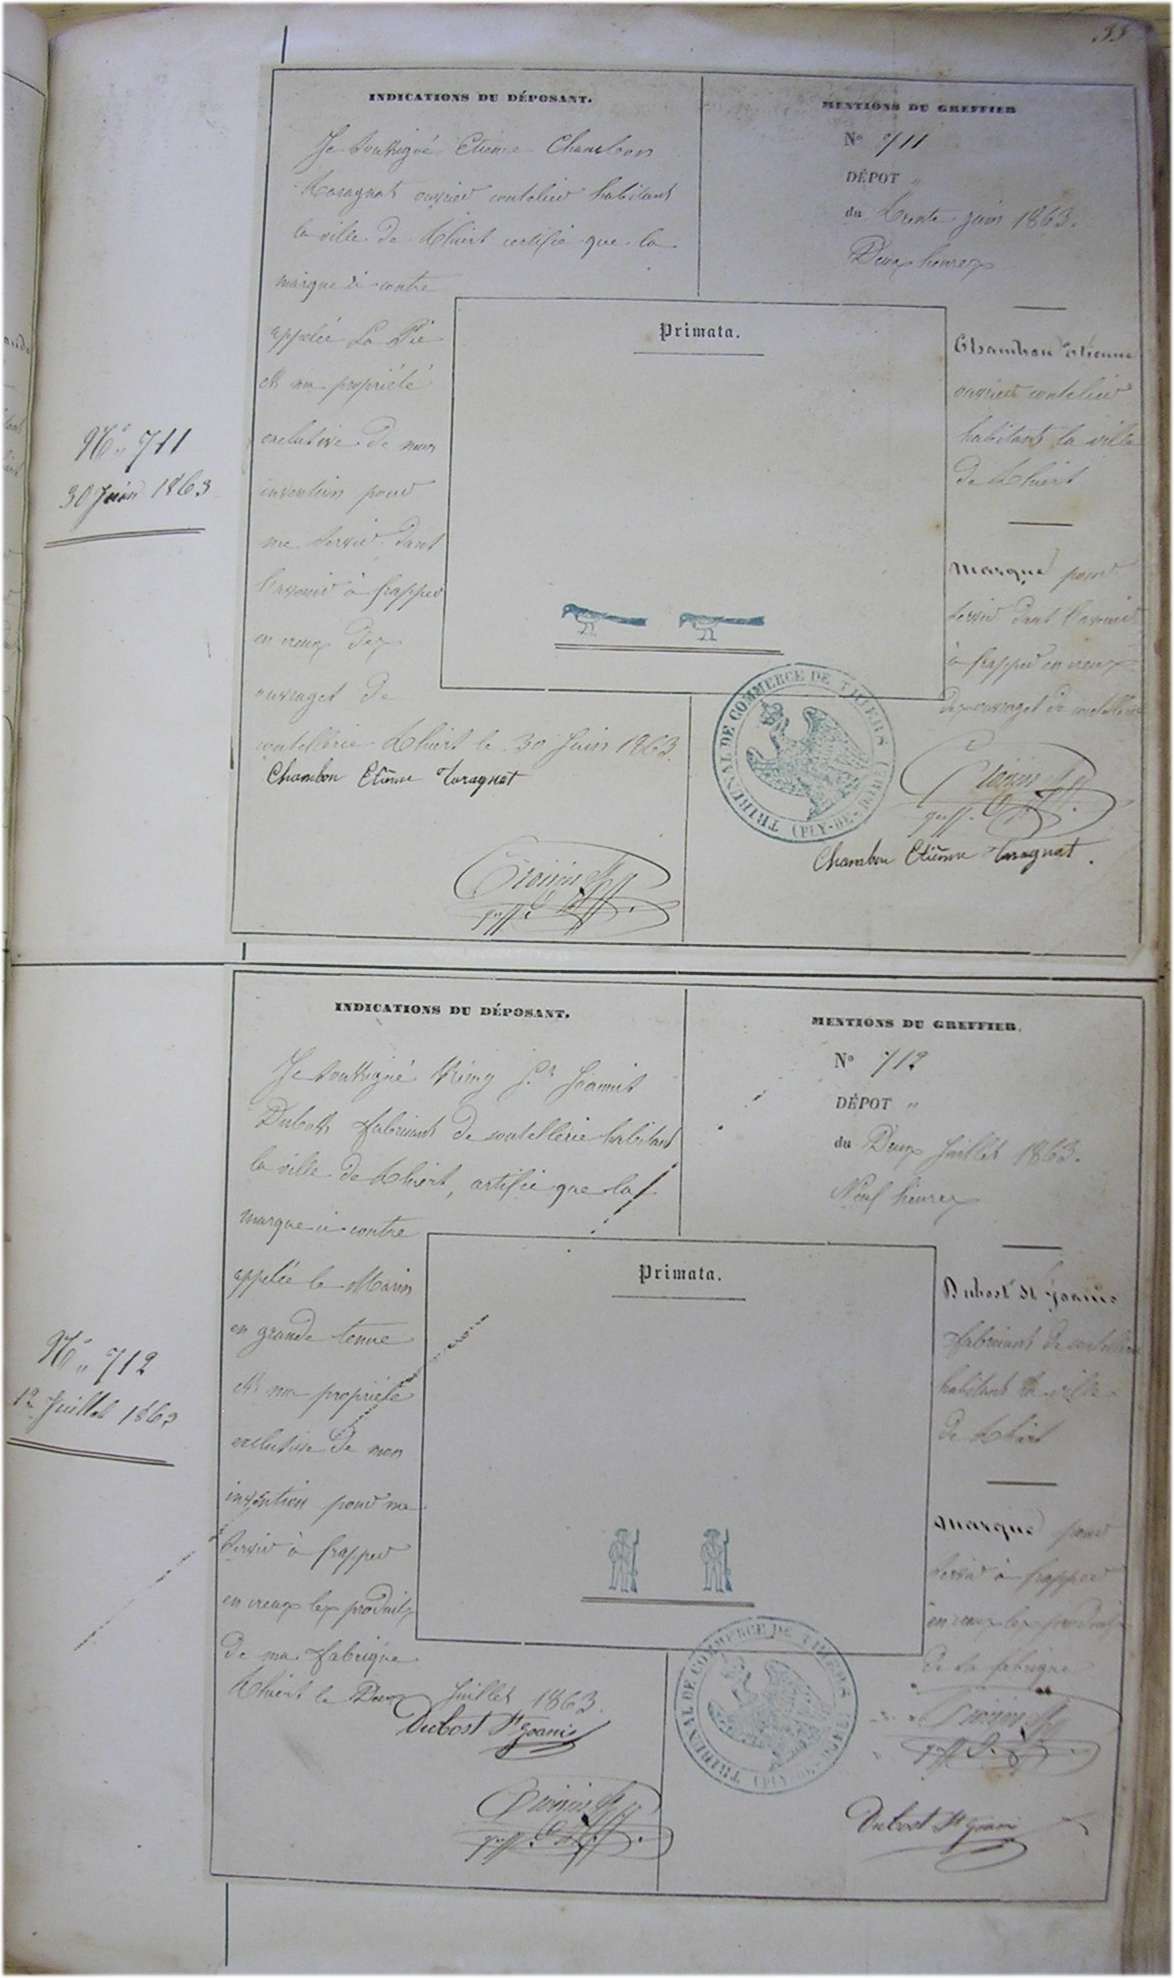 33
N° 711
30 Juin 1863
INDICATIONS DU DÉPOSANT.
Je soussigné Etienne Chambon
Taragnat ouvrier coutelier habitant
la ville de Thiers certifie que la
marque ci-contre
appelée La Pie
est ma propriété
exclusive de mon
invention pour
me servir dans
l'avenir à frapper
en creux des
ouvrages de
coutellerie Thiers le 30 Juin 1863.
Chambon Etienne Taragnat
greff.
Primata.
MENTIONS DU GREFFIER
N° 711
DÉPOT "
du trente juin 1863.
Deux heures
Chambon Etienne
ouvrier coutelier
habitant la ville
de Thiers
Marque pour
servir dans l'avenir
à frapper en creux
des ouvrages de coutellerie
greff.
Chambon Etienne Taragnat.
TRIBUNAL DE COMMERCE DE THIERS (PUY-DE-DÔME)
N° 712
12 Juillet 1863
INDICATIONS DU DÉPOSANT.
Je soussigné Rémy St Joannis
Dubost fabricant de coutellerie habitant
la ville de Thiers, certifie que la
marque ci-contre
appelée le Marin
en grande tenue
est ma propriété
exclusive de mon
invention pour me
servir à frapper
en creux les produits
de ma fabrique
Thiers le Deux Juillet 1863.
Dubost St Joanis
greff.
Primata.
MENTIONS DU GREFFIER.
N° 712
DÉPOT "
du Deux Juillet 1863.
Neuf heures
Dubost St Joanis
fabricant de coutellerie
habitant la ville
de Thiers
Marque pour
servir à frapper
en creux les produits
de sa fabrique
greff.
Dubost St Joanis
TRIBUNAL DE COMMERCE DE THIERS